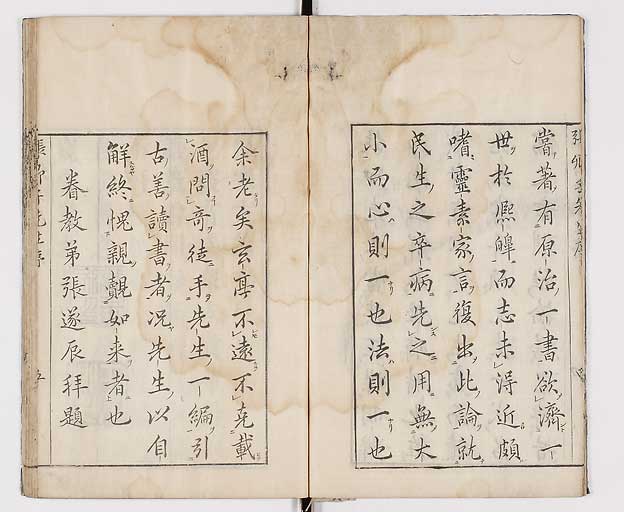 嘗著有原治一書欲濟一
世於熈皥而志未得近頗
嗜靈素家言復出此論就
民生之卒病先之用無大
小而心則一也法則一也
余老矣玄亭不遠不克載
酒問奇徒手先生一編引
古善讀書者况先生以自
解終愧親覿如来者也
眷教弟張遂辰拜題